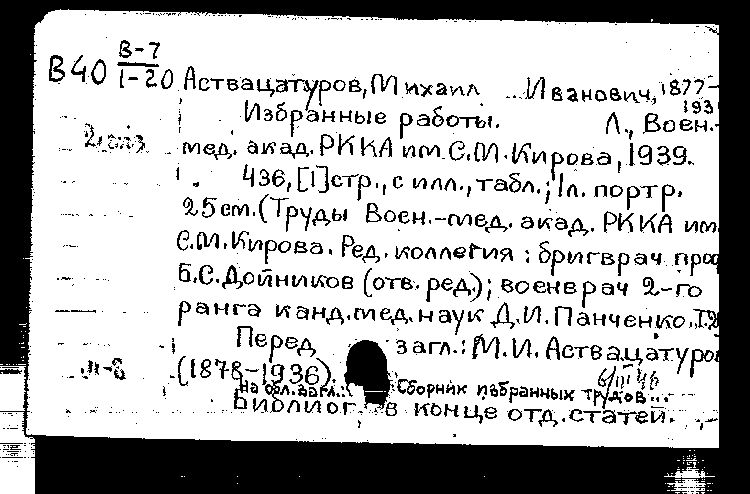 В-7
В40 1-20 Аствацатуров, Михаил Иванович, 1877-
193
Избранные работы. Л., Воен.-
2 экз.
мед. акад. РККА им. С.М. Кирова, 1939.
436, [1] стр., с илл., табл.; 1 л. портр.
25 см. (Труды Воен.-мед. акад. РККА им.
С.М. Кирова. Ред. коллегия: бригврач проф
Б.С. Дойников (отв. ред.); военврач 2-го
ранга канд. мед. наук Д.И. Панченко.
Перед загл.: М.И. Аствацатуров
(1878-1936).
м-8
6/III 46
На обл. загл.: Сборник избранных трудов...
Библиог. в конце отд. статей.